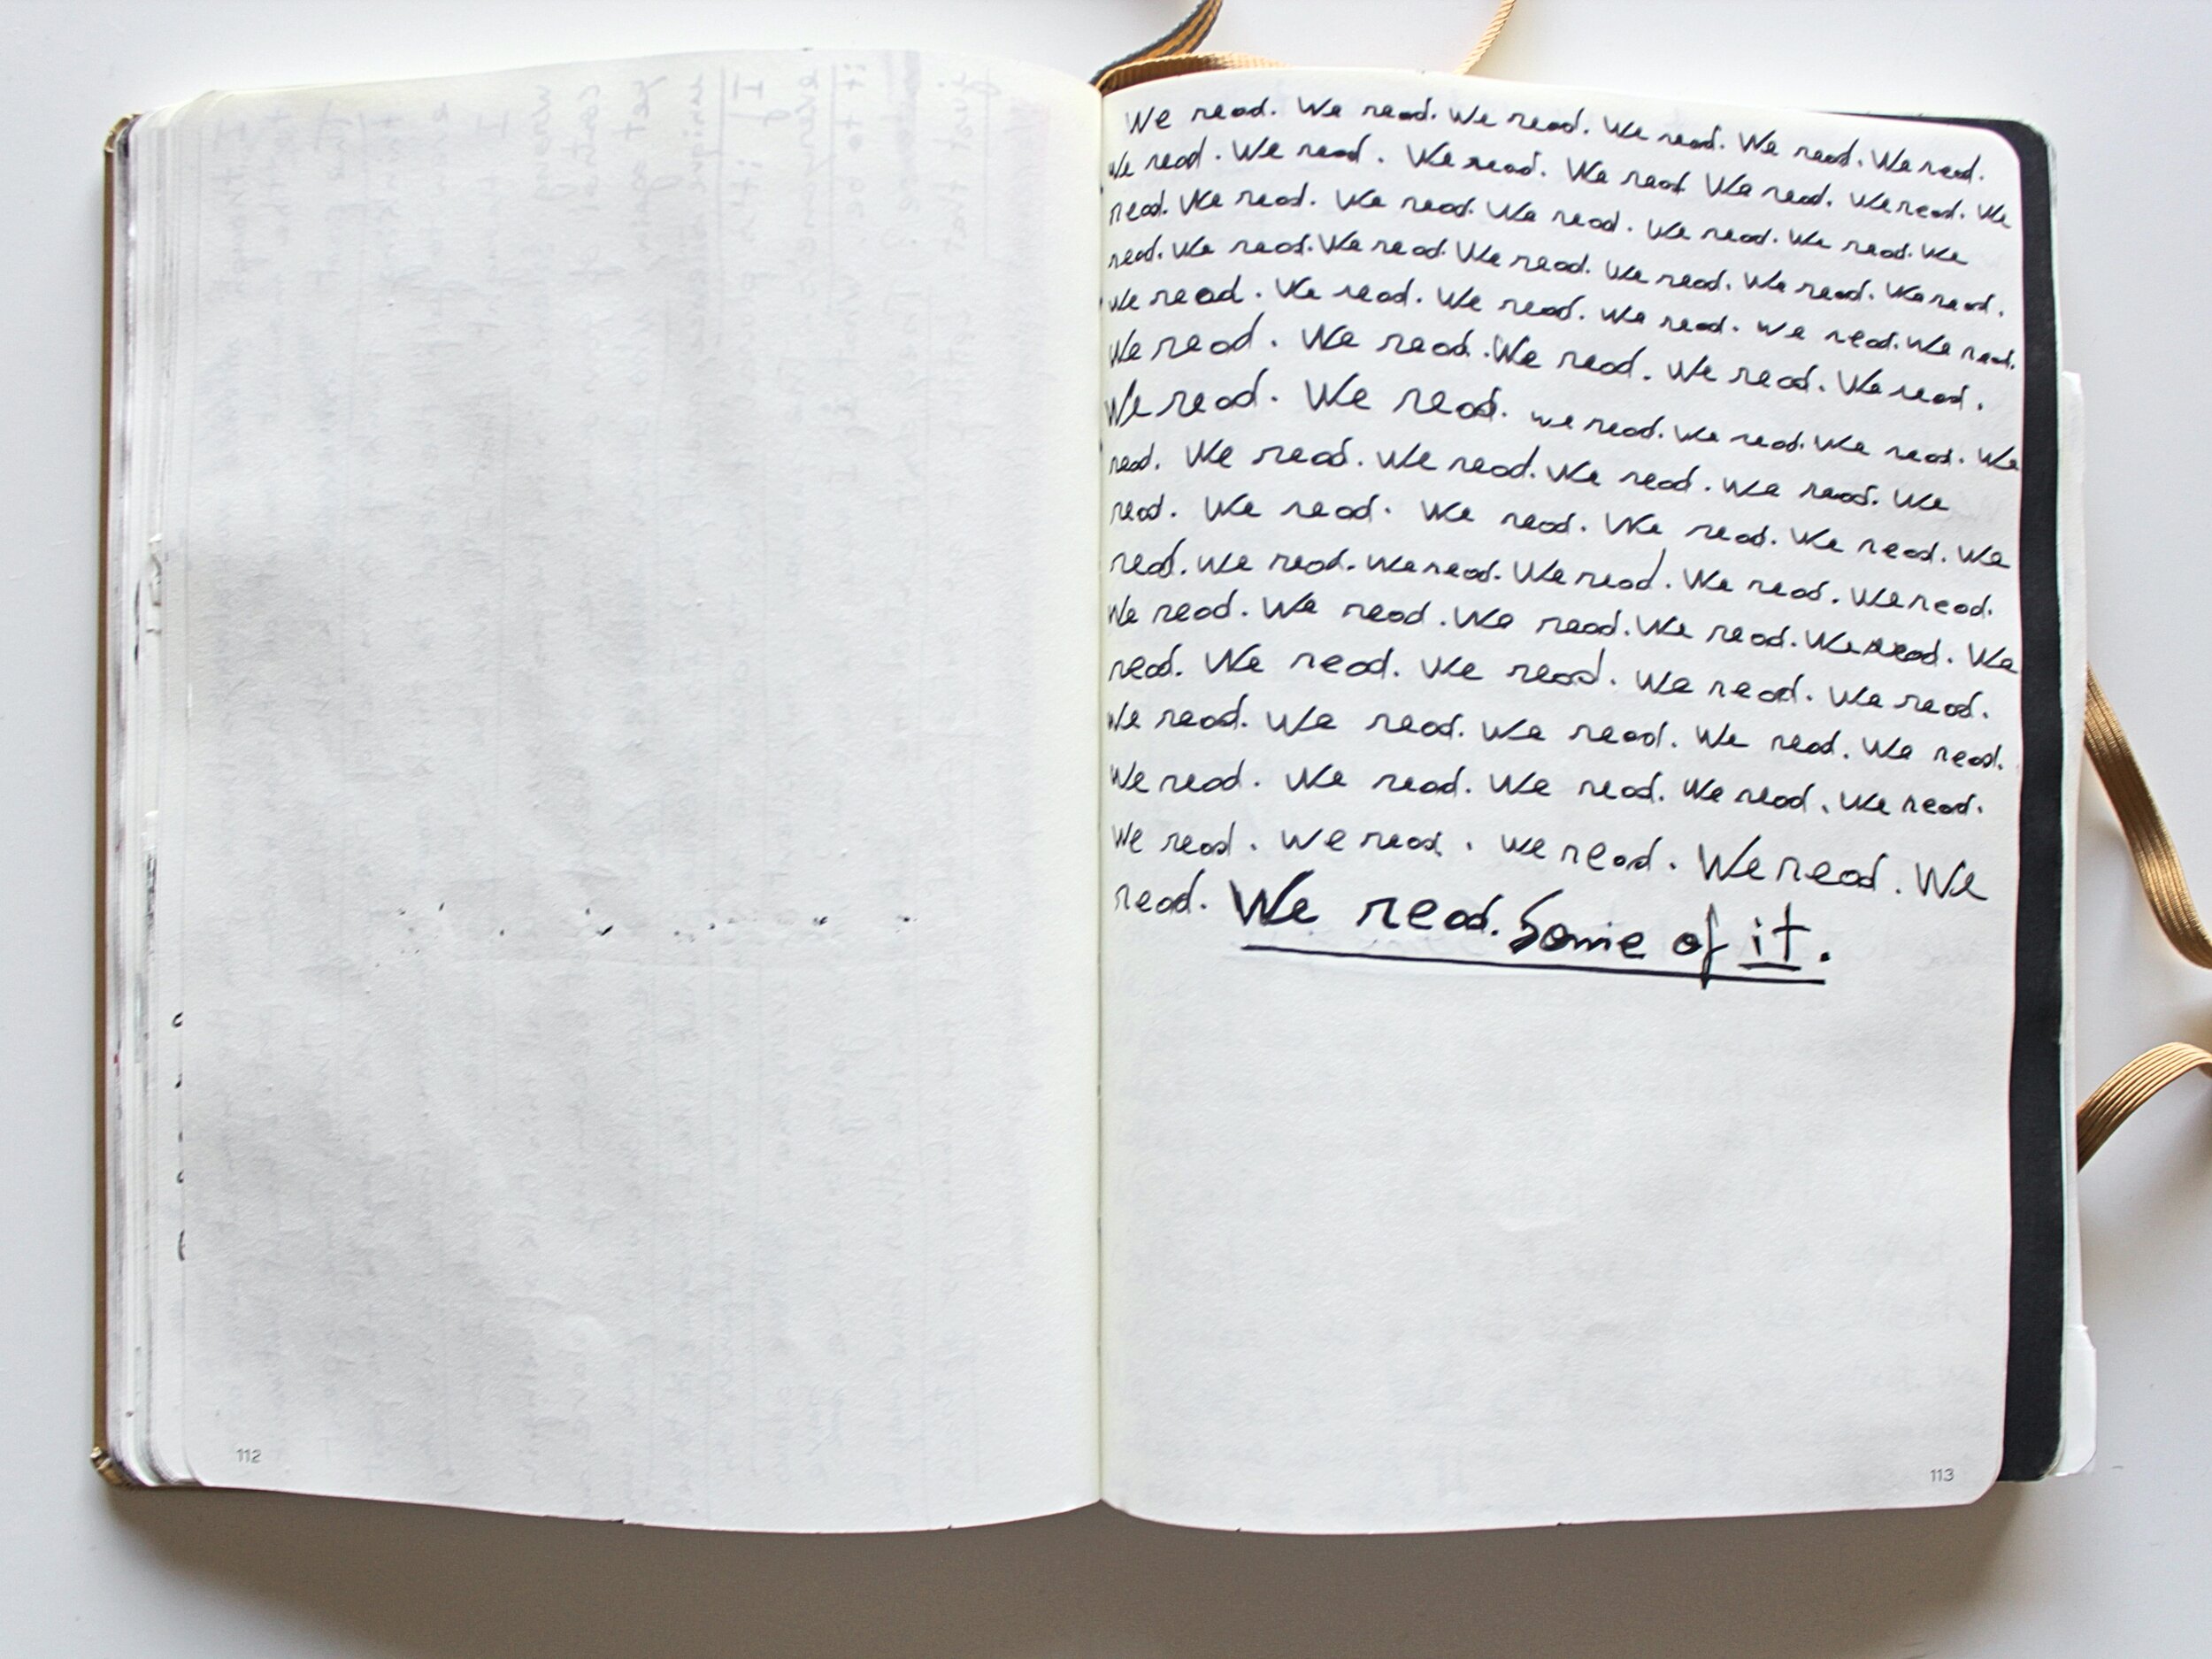 We read. We read. We read. We read. We read. We read.
We read. We read. We read. We read We read. We read. We
read. We read. We read. We read. We read. We read. We
read. We read. We read. We read. We read. We read. We read.
We read. We read. We read. We read. We read. We read.
We read. We read. We read. We read. We read.
We read. We read. we read. We read. We read. We
read. We read. We read. We read. We read. We
read. We read. We read. We read. We read. We
read. We read. We read. We read. We read. We read.
We read. We read. We read. We read. We read. We
read. We read. We read. We read. We read.
We read. We read. We read. We read. We read.
We read. We read. We read. We read. We read.
We read. We read. We read. We read. We
read. We read. Some of it.
112
113